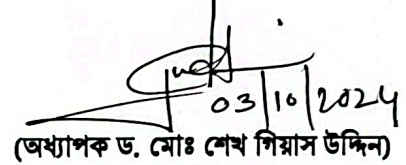 03/10/2024
(অধ্যাপক ড. মোঃ শেখ গিয়াস উদ্দিন)